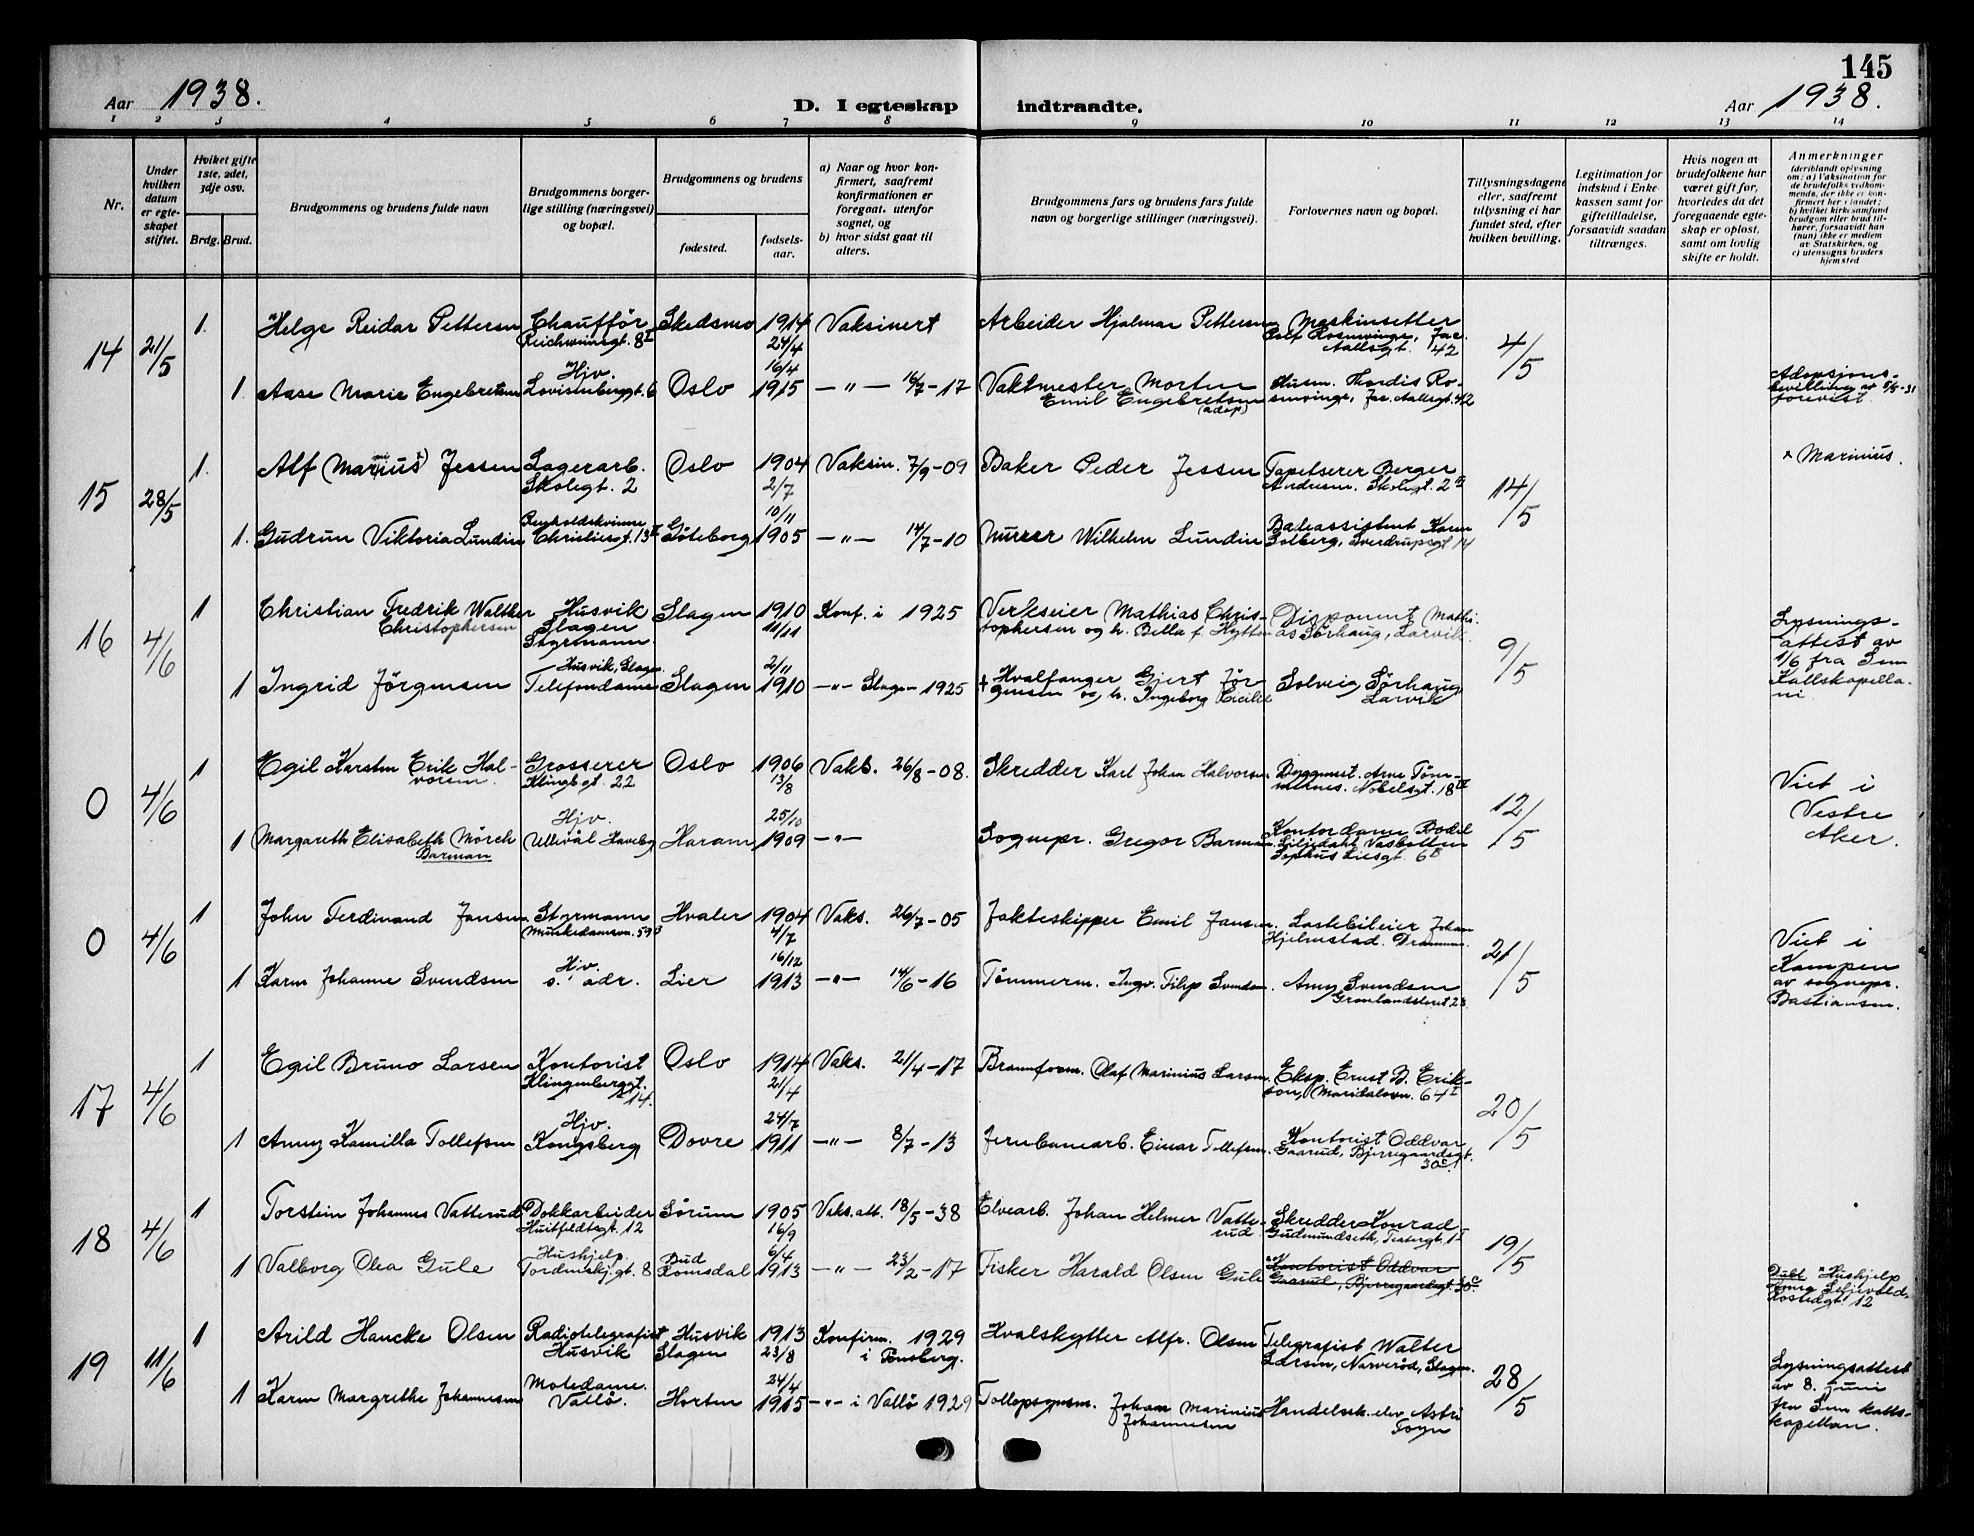 145
Aar 1938.
D. I egteskap indtraadte.
Aar 1938.
1 2 3 4 5 6 7 8 9 10 11 12 13 14
Nr.
Under hvilken datum er egteskapet stiftet.
Hviket gifte 1ste, 2det, 3dje osv.
Brdg. Brud.
Brudgommens og brudens fulde navn
Brudgommens borgerlige stilling (næringsvei) og bopæl.
Brudgommens og brudens
fødested.
fødselsaar.
a) Naar og hvor konfirmert, saafremt konfirmationen er foregaat. utenfor sognet, og
b) hvor sidst gaat til alters.
Brudgommens fars og brudens fars fulde navn og borgerlige stillinger (næringsvei).
Forlovernes navn og bopæl.
Tillysningsdagene eller, saafremt tillysning ei har fundet sted, efter hvilken bevilling.
Legitimation for indskud i Enkekassen samt for giftetilladelse, forsaavidt saadan tiltrænges.
Hvis nogen av brudefolkene har været gift før, hvorledes da det foregaaende egteskap er opløst, samt om lovlig skifte er holdt.
Anmerkninger
(deriblandt oplysning om: a) Vaksination for de brudefolks vedkommende, der ikke er konfirmert her i landet;
b) hvilket kirkesamfund brudgom eller brud tilhører, forsaavidt han (hun) ikke er medlem av Statskirken, og
c) utensogns bruders hjemsted
14 21/5
1. Helge Reidar Pettersen Chauffør Skedsmo 1914 Vaksinert Arbeider Hjalmar Pettersen Maskinsetter
Reichweinsgt. 8 I 24/4 Leif Rosenvinge, Jac. Aallsgt. 42 4/5
1. Aase Marie Engebretsen Hjv. Lovisenberggt. 6 Oslo 16/4 1915 — " — 16/7-17 Vaktmester Morten Emil Engebretsen (adop) Husm. Thordis Rosenvinge, Jac. Aallsgt. 42 Adopsjonsbevilling av 5/8-31 forevist.
15 28/5
1. Alf Marius x) Jessen Lagerarb. Oslo 1904 Vaksin. 7/9-09 Baker Peder Jessen Tapetserer Berger x Marinius.
Skolegt. 2 2/7 Andresen. Skolegt. 2 B 14/5
1. Gudrun Viktoria Lundin Renholdskvinne Christiesgt. 13 II Göteborg 10/11 1905 — " — 14/7-10 Murer Wilhelm Lundin Badeassistent Karen Solberg, Sverdrupsgt. 14
16 4/6
1 Christian Fredrik Walther Christophersen Husvik Slagen Styrmann Slagen 1910 11/11 Konf. i 1925 Verkseier Mathias Christophersen og h. Bella f. Hytten Disponent Mathias Sørhaug, Larvik. 9/5
Lysningsattest av 1/6 fra Sem Kallskapellani
1 Ingrid Jörgensen Husvik, Slagen. Telefondame Slagen 2/11 1910 — " — Slagen 1925 + Hvalfanger Gjert Jörgensen og h. Ingeborg Cecilie Solveig Sørhaug Larvik
0 4/6
1 Egil Karsten Erik Halvorsen. Grosserer Klingbgt. 22 Oslo 1906 13/8 Vakb. 26/8-08. Skredder Karl Johan Halvorsen. Byggmest. Arne Tømmernes. Nobelsgt. 18 IV 12/5
Viet i Vestre Aker.
1 Margareth Elisabeth Mörch Barman Hjv. Ullevål Haveby Haram 25/10 1909 — " — Sognepr. Gregor Barman. Kontordame Bodil Liljedahl Vasbotten Sophus Liesgt. 6 B
0 4/6
1 John Ferdinand Jansen. Styrmann Munkedamsvn. 59 B Hvaler 1904 4/7 Vaks. 26/7-05 Jakteskipper Emil Jansen. Lastebileier Johan Hjelmstad. Drammen. 21/5
Viet i Kampen av sognepr. Bastiansen.
1 Karen Johanne Svendsen Hjv. s. adr. Lier 16/12 1913 — " — 14/6-16 Tømmerm. Ingv. Filip Svendsen. Amy Svendsen Grønlandsleret 23
17 4/6
1 Egil Bruno Larsen Kontorist Klingenberggt. 14. Oslo 1914 21/4 Vaks. 21/4-17 Brannform. Olaf Marinius Larsen. Eksp. Ernst B. Erikson, Maridalsvn. 64 I 20/5
1 Anny Kamilla Tollefsen Hjv. Kongsberg Dovre 24/7 1911 — " — 8/7-13 Jernbanearb. Einar Tollefsen. Kontorist Oddvar Gaarud, Bjerregaardsgt. 30 c.
18 4/6
1 Torstein Johannes Vatterud Dokkarbeider Huitfeldtsgt. 12 Sörum 1905 16/9 Vaks. att. 18/5-38 Elvearb. Johan Helmer Vatterud. Skredder Konrad Gudmundseth, Teatergt. 1 I 19/5
1 Valborg Olea Gule Hushjelp. Tordenskj.gt. 8 Bud Romsdal 6/4 1913 — " — 23/2-17 Fisker Harald Olsen Gule Kontorist Oddvar Gaarud, Bjerregaardsgt. 30 c.
x Hushjelp 12
19 11/6
1 Arild Hancke Olsen Radiotelegrafist Husvik Husvik Slagen 1913 23/8 Konfirm. 1929 i Tönsberg. Hvalskytter Alfr. Olsen Telegrafist Walter Larsen, Narverød, Slagen. 28/5
Lysningsattest av 8. juni fra Sem kallskapellan.
1 Karen Margrethe Johannessen Motedame. Vallö. Horten 24/4 1915 — " — i Vallö 1929 Tolloppsynsm. Johan Marinius Johannessen Handelssk. elev Astri Foyn